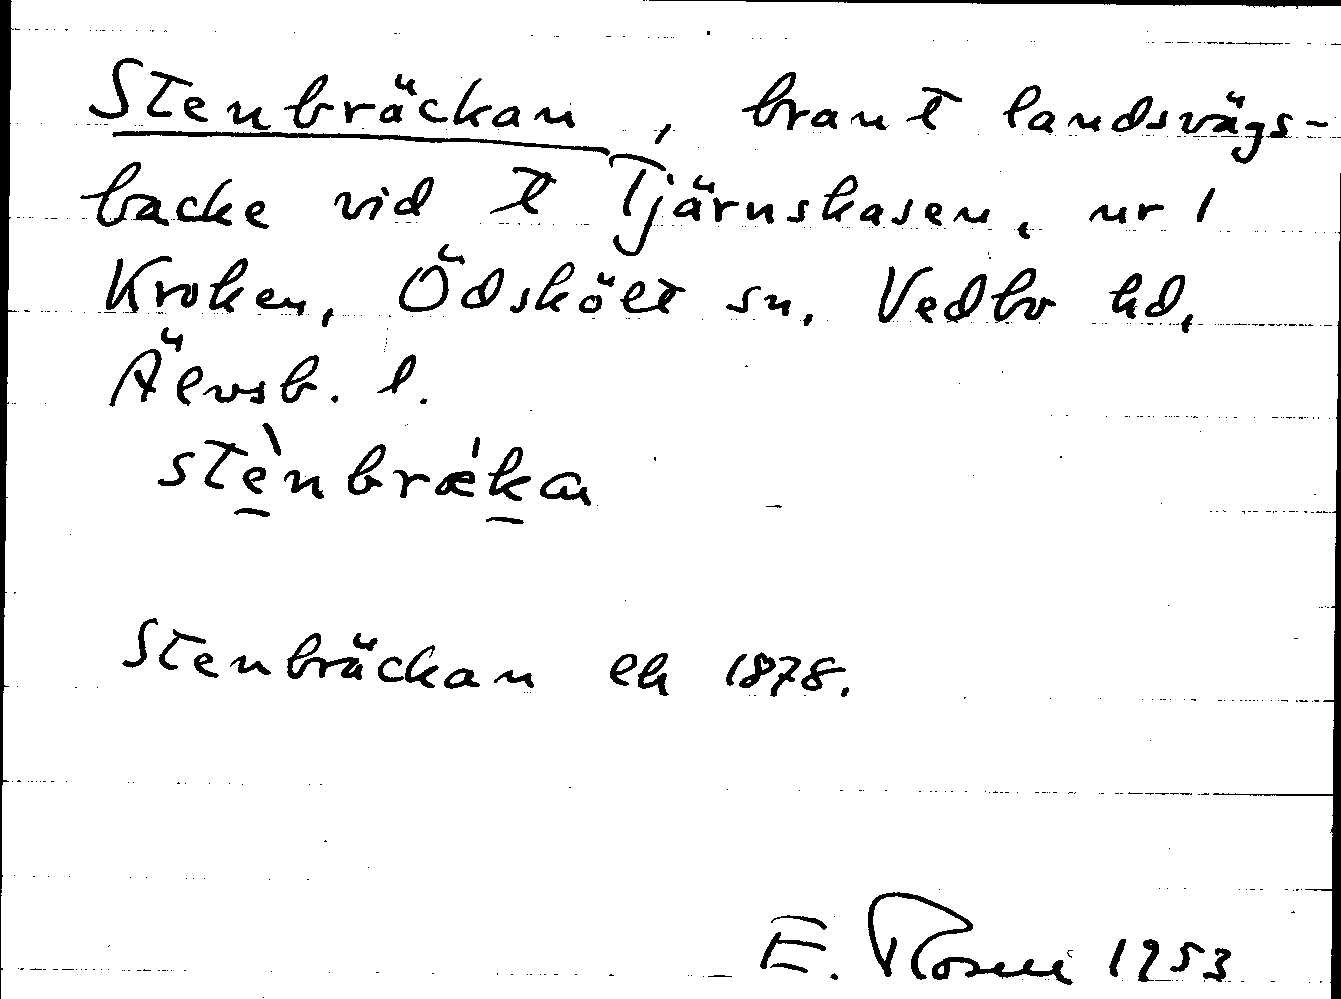 Stenbräckan, brant landsvägs-
backe vid t Tjärnskasen, nr 1
Kroken, Ödskölt sn. Vedbo hd,
Älvsb. l.
stènbrǽkan
Stenbräckan ek 1878.
E. 1953